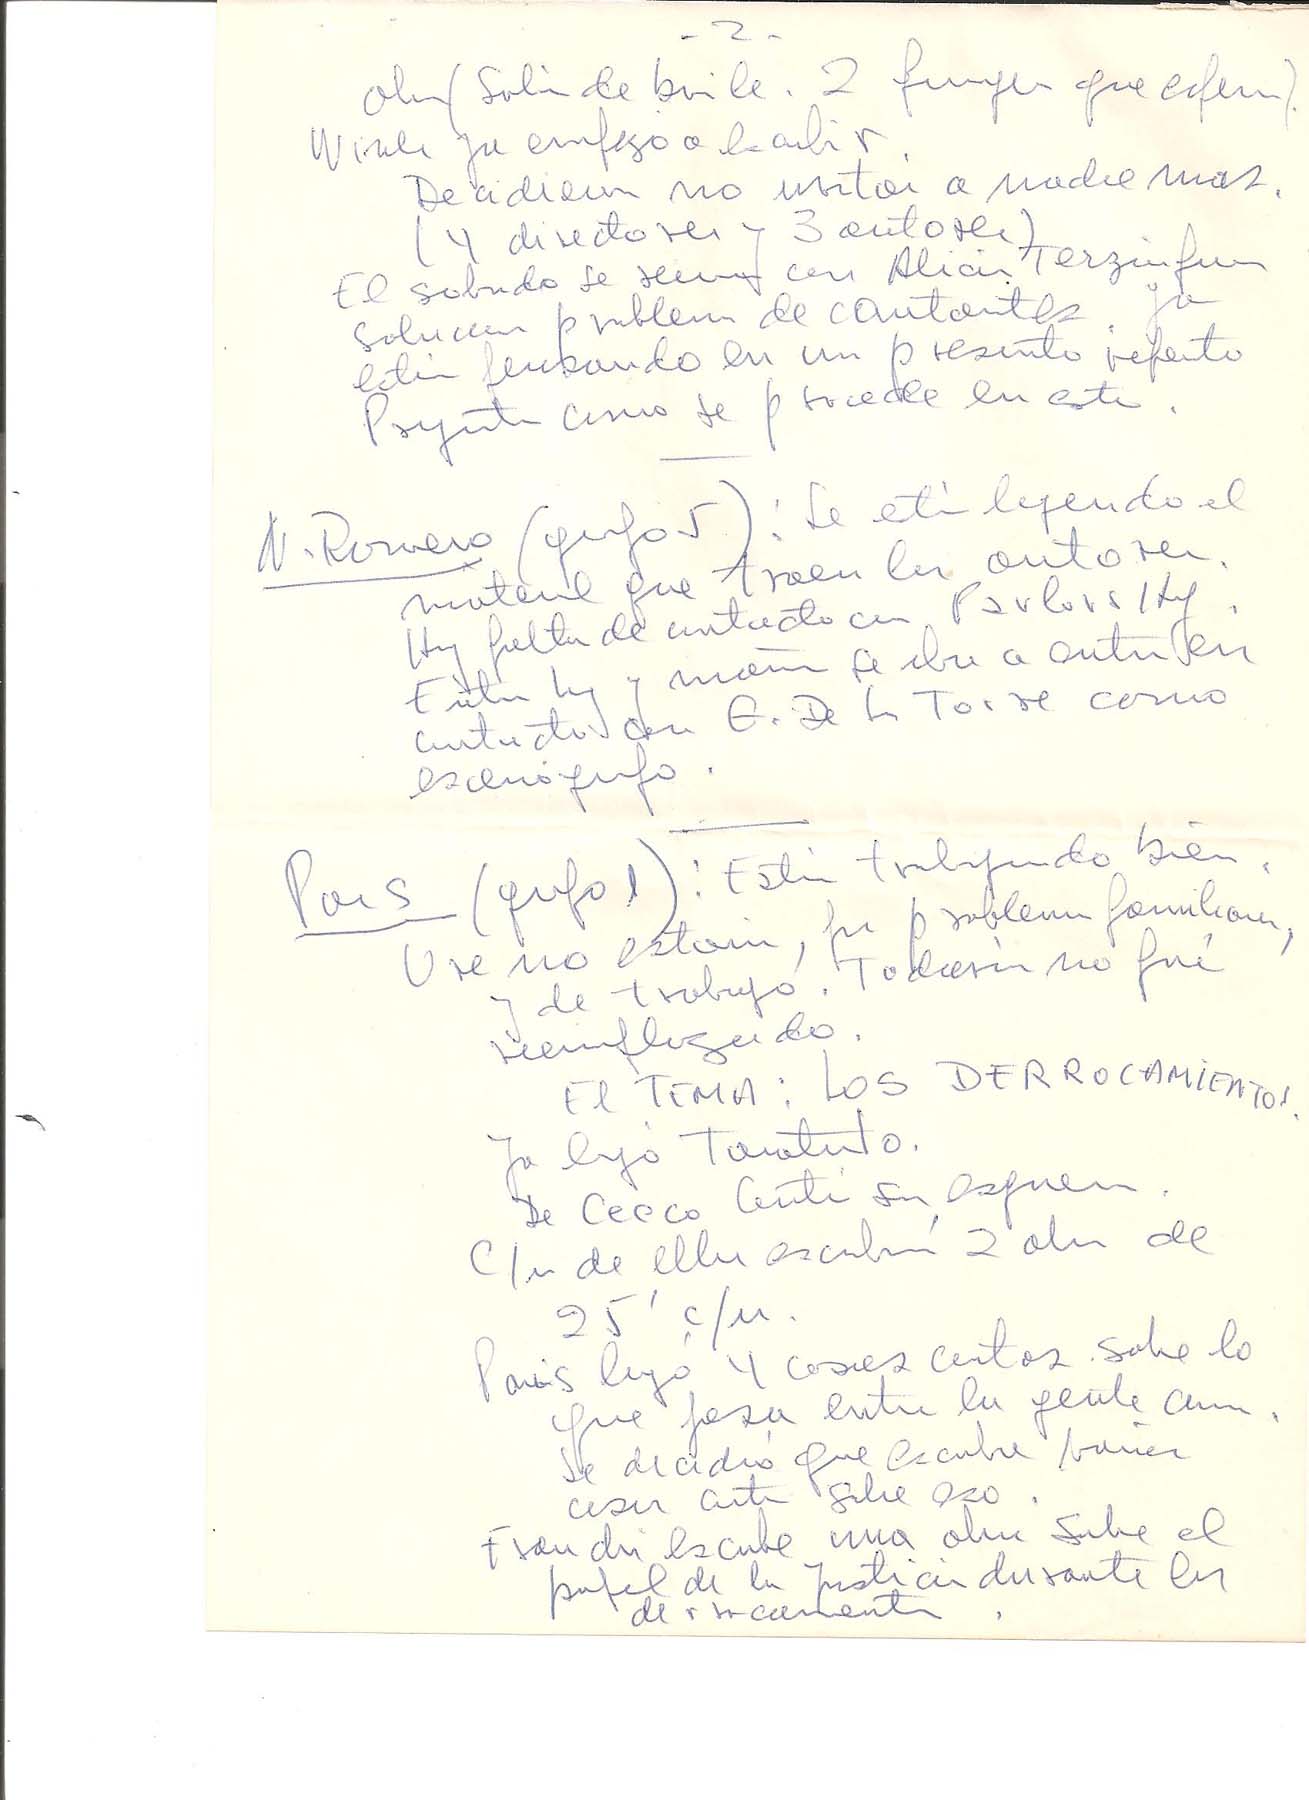 - 2 -
obra (Salón de baile. 2 que esperan).
Winer ya empezó a escribir.
Decidieron no invitar a nadie mas.
(4 directores y 3 autores)
El sabado se reunen con Alicia Terzian para
solucionar problema de cantantes. Ya
están pensando en un presunto reparto
Pregunta como se procede en esto.
N. Romero (grupo 5): Se está leyendo el
material que traen los autores.
Hay falta de contacto con Pavlovsky.
Entre hoy y mañana se iba a entrar en
contacto con G. De La Torre como
escenógrafo.
Pais (grupo 1): Están trabajando bien.
Ure no estaría, por problemas familiares,
y de trabajo. Todavía no fué
reemplazado.
El TEMA: LOS DERROCAMIENTOS.
Ya leyó Taratuto.
De Cecco contó su esquema.
C/u de ellos escribirá 2 obras de
25' c/u.
Pais leyó 4 cosas cortas sobre lo
que pasa entre la gente comun.
Se decidió que escriba varias
cosas cortas sobre eso.
escribe una obra sobre el
papel de la Justicia durante los
derrocamientos.